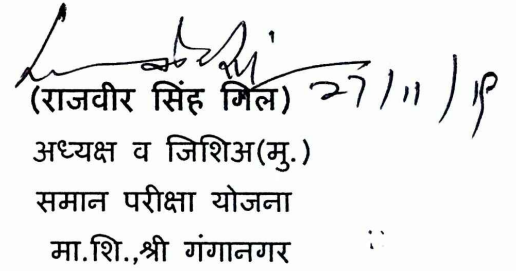 (राजवीर सिंह गिल) 27/11/19
अध्यक्ष व जिशिअ(मु.)
समान परीक्षा योजना
मा.शि.,श्री गंगानगर